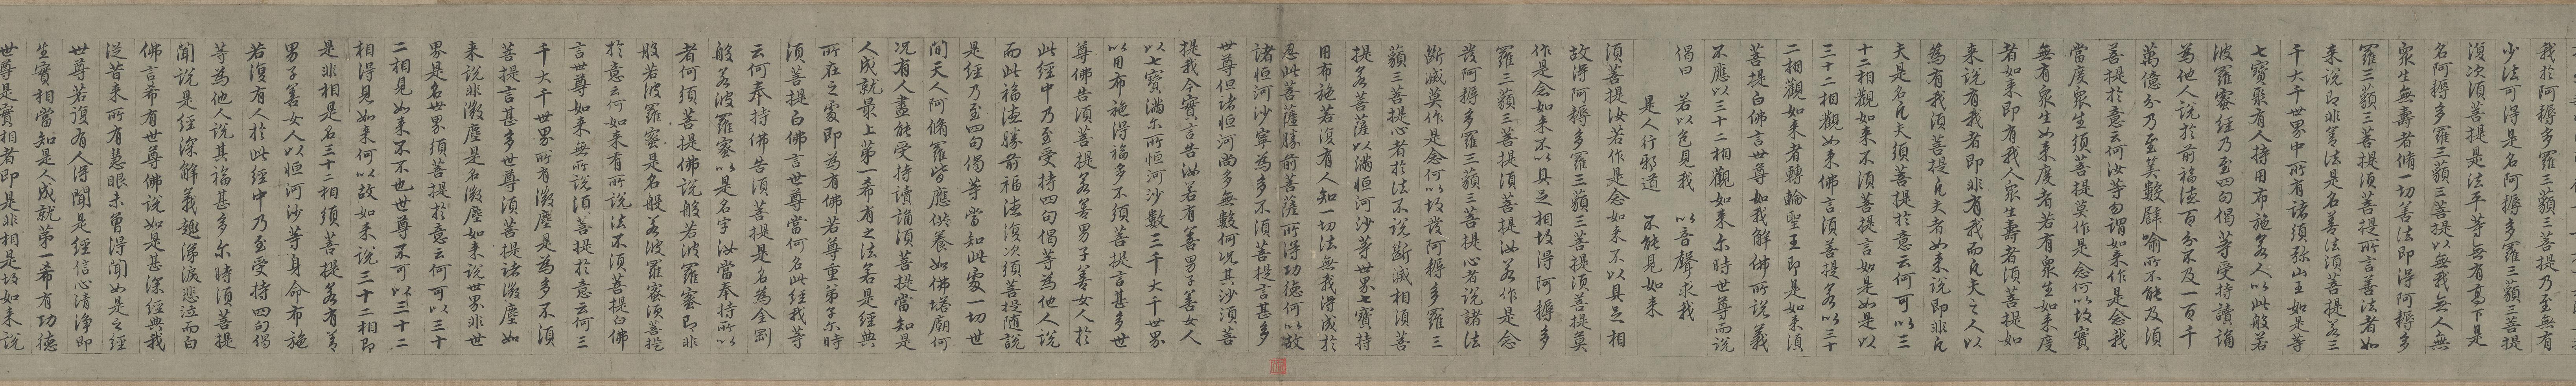 我於阿耨多羅三藐三菩提乃至無有
少法可得是名阿耨多羅三藐三菩提
復次須菩提是法平等無有高下是
名阿耨多羅三藐三菩提以無我無人無
眾生無壽者脩一切善法即得阿耨多
羅三藐三菩提須菩提所言善法者如
來說即非善法是名善法須菩提若三
千大千世界中所有諸須弥山王如是等
七寶聚有人持用布施若人以此般若
波羅蜜經乃至四句偈等受持讀誦
為他人說於前福德百分不及一百千
萬億分乃至筭數譬喻所不能及須
菩提於意云何汝等勿謂如來作是念我
當度眾生須菩提莫作是念何以故實
無有眾生如來度者若有眾生如來度
者如來即有我人眾生壽者須菩提如
來說有我者即非有我而凡夫之人以
為有我須菩提凡夫者如來說即非凡
夫是名凡夫須菩提於意云何可以三
十二相觀如來不須菩提言如是如是以
三十二相觀如來佛言須菩提若以三十
二相觀如來者轉輪聖王即是如來須
菩提白佛言世尊如我解佛所說義
不應以三十二相觀如來尔時世尊而說
偈曰 若以色見我 以音聲求我
是人行邪道 不能見如來
須菩提汝若作是念如來不以具足相
故得阿耨多羅三藐三菩提須菩提莫
作是念如來不以具足相故得阿耨多
羅三藐三菩提須菩提汝若作是念
發阿耨多羅三藐三菩提心者說諸法
斷滅莫作是念何以故發阿耨多羅三
藐三菩提心者於法不說斷滅相須菩
提若菩薩以滿恒河沙等世界七寶持
用布施若復有人知一切法無我得成於
忍此菩薩勝前菩薩所得功德何以故
諸恒河沙寧為多不須菩提言甚多
世尊但諸恒河尚多無數何況其沙須菩
提我今實言告汝若有善男子善女人
以七寶滿尔所恒河沙數三千大千世界
以用布施得福多不須菩提言甚多世
尊佛告須菩提若善男子善女人於
此經中乃至受持四句偈等為他人說
而此福德勝前福德復次須菩提隨說
是經乃至四句偈等當知此處一切世
間天人阿脩羅皆應供養如佛塔廟何
況有人盡能受持讀誦須菩提當知是
人成就最上第一希有之法若是經典
所在之處即為有佛若尊重弟子尔時
須菩提白佛言世尊當何名此經我等
云何奉持佛告須菩提是名為金剛
般若波羅蜜以是名字汝當奉持所以
者何須菩提佛說般若波羅蜜即非
般若波羅蜜是名般若波羅蜜須菩提
於意云何如來有所說法不須菩提白佛
言世尊如來無所說須菩提於意云何三
千大千世界所有微塵是為多不須
菩提言甚多世尊須菩提諸微塵如
來說非微塵是名微塵如來說世界非世
界是名世界須菩提於意云何可以三十
二相見如來不不也世尊不可以三十二
相得見如來何以故如來說三十二相即
是非相是名三十二相須菩提若有善
男子善女人以恒河沙等身命布施
若復有人於此經中乃至受持四句偈
等為他人說其福甚多尔時須菩提
聞說是經深解義趣涕淚悲泣而白
佛言希有世尊佛說如是甚深經典我
從昔來所有慧眼未曾得聞如是之經
世尊若復有人得聞是經信心清淨即
生實相當知是人成就第一希有功德
世尊是實相者即是非相是故如來說